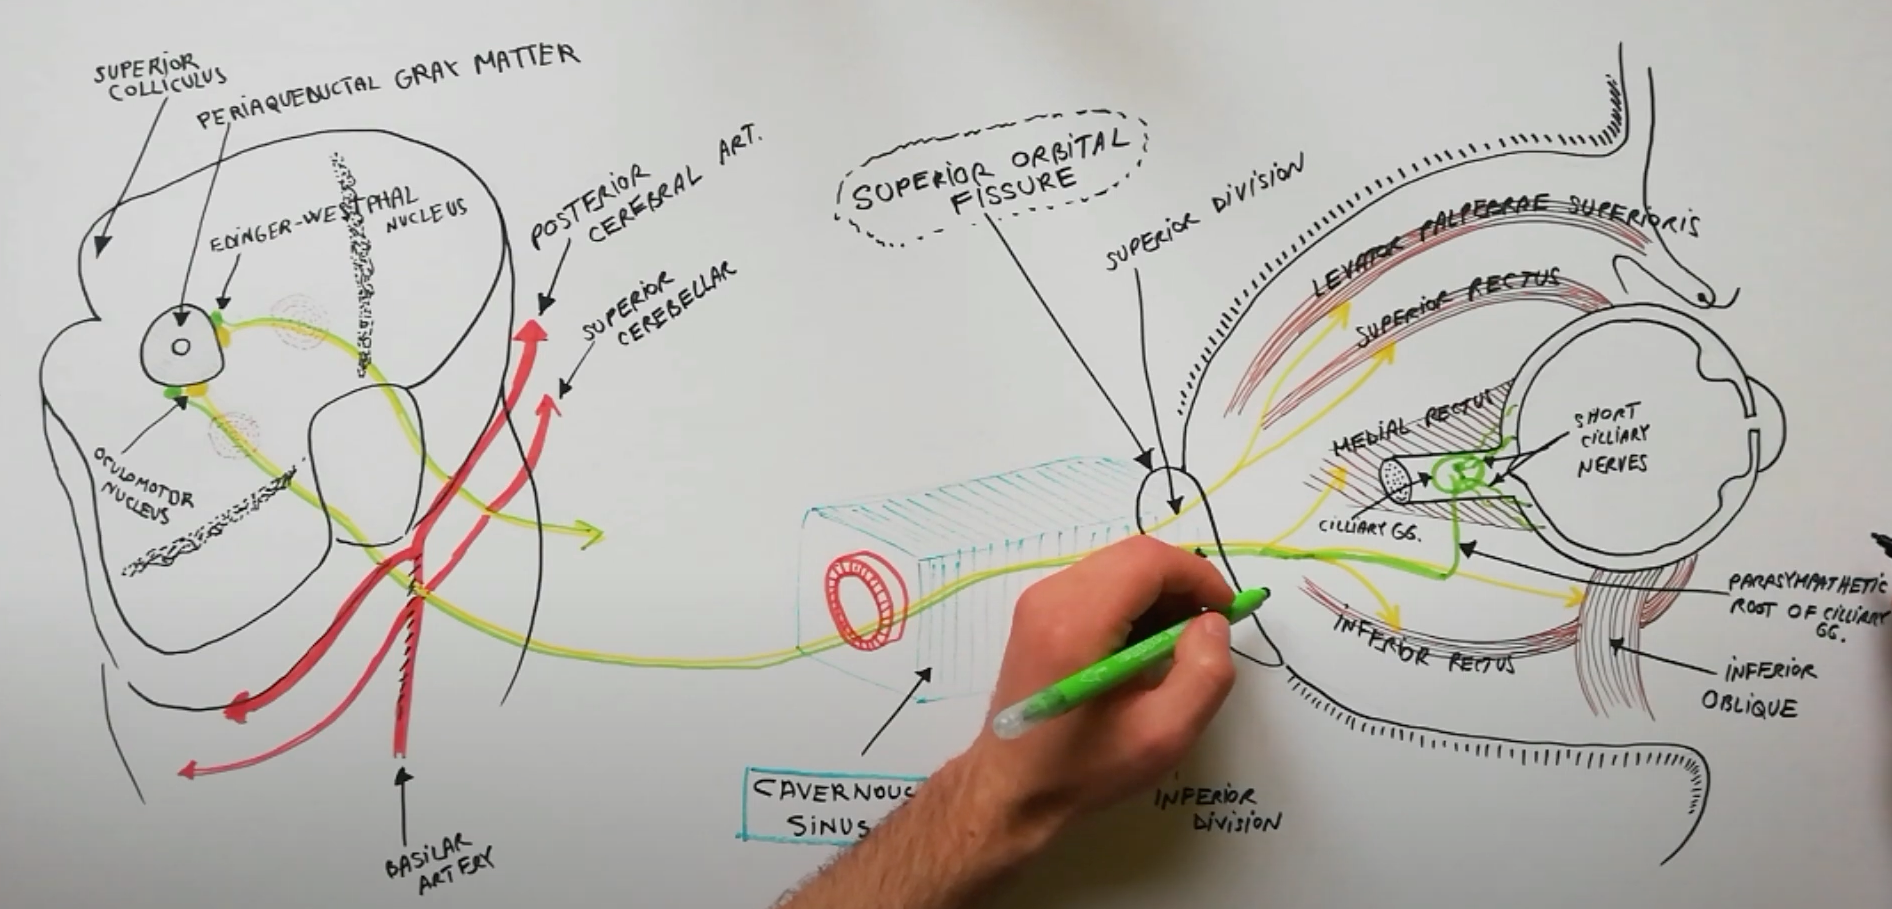 SUPERIOR
COLLICULUS
PERIAQUEDUCTAL GRAY MATTER
EDINGER-WESTPHAL
NUCLEUS
OCULOMOTOR
NUCLEUS
POSTERIOR
CEREBRAL ART.
SUPERIOR
CEREBELLAR
BASILAR
ARTERY
SUPERIOR ORBITAL
FISSURE
SUPERIOR DIVISION
CAVERNOUS
SINUS
INFERIOR
DIVISION
LEVATOR PALPEBRAE SUPERIORIS
SUPERIOR RECTUS
MEDIAL RECTUS
SHORT
CILLIARY
NERVES
CILLIARY GG.
INFERIOR RECTUS
PARASYMPATHETIC
ROOT OF CILLIARY
GG.
INFERIOR
OBLIQUE